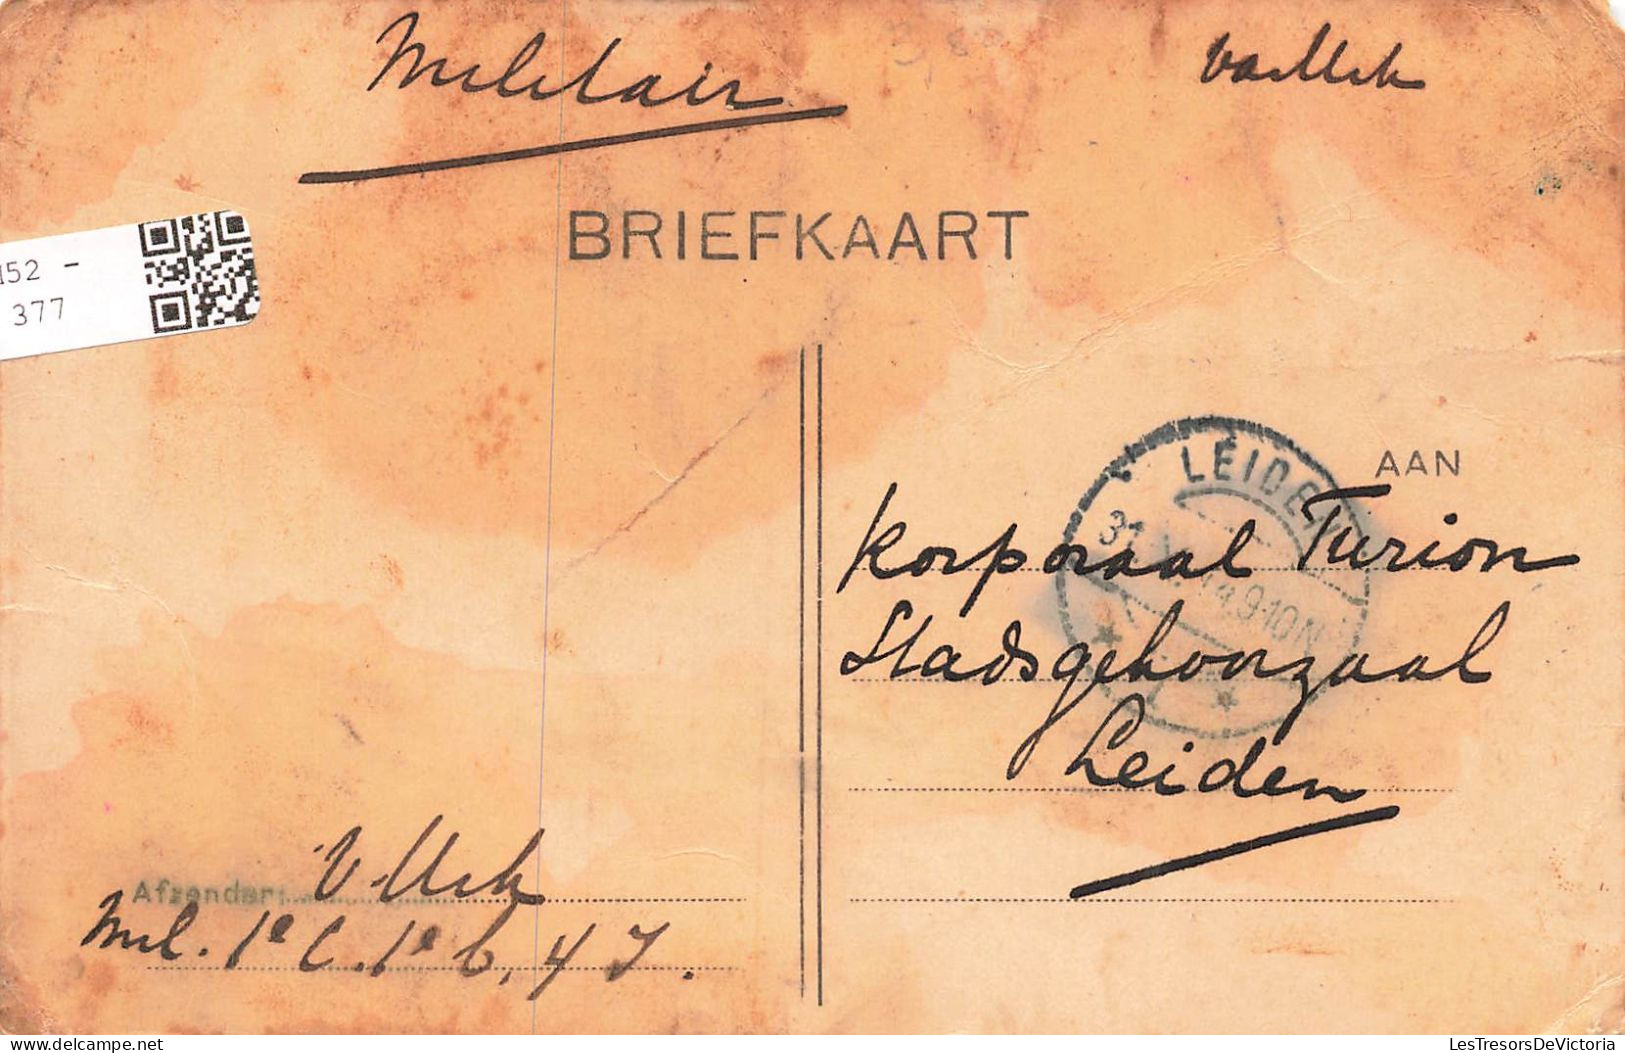 Militair
BRIEFKAART
152 -
377
LEIDEN
31
9-10N
AAN
Korporaal Turion
Stadsgehoorzaal
Leiden
Afzender:
Mil. 1e C. 1e b, 4
delcampe.net
LesTresorsDeVictoria